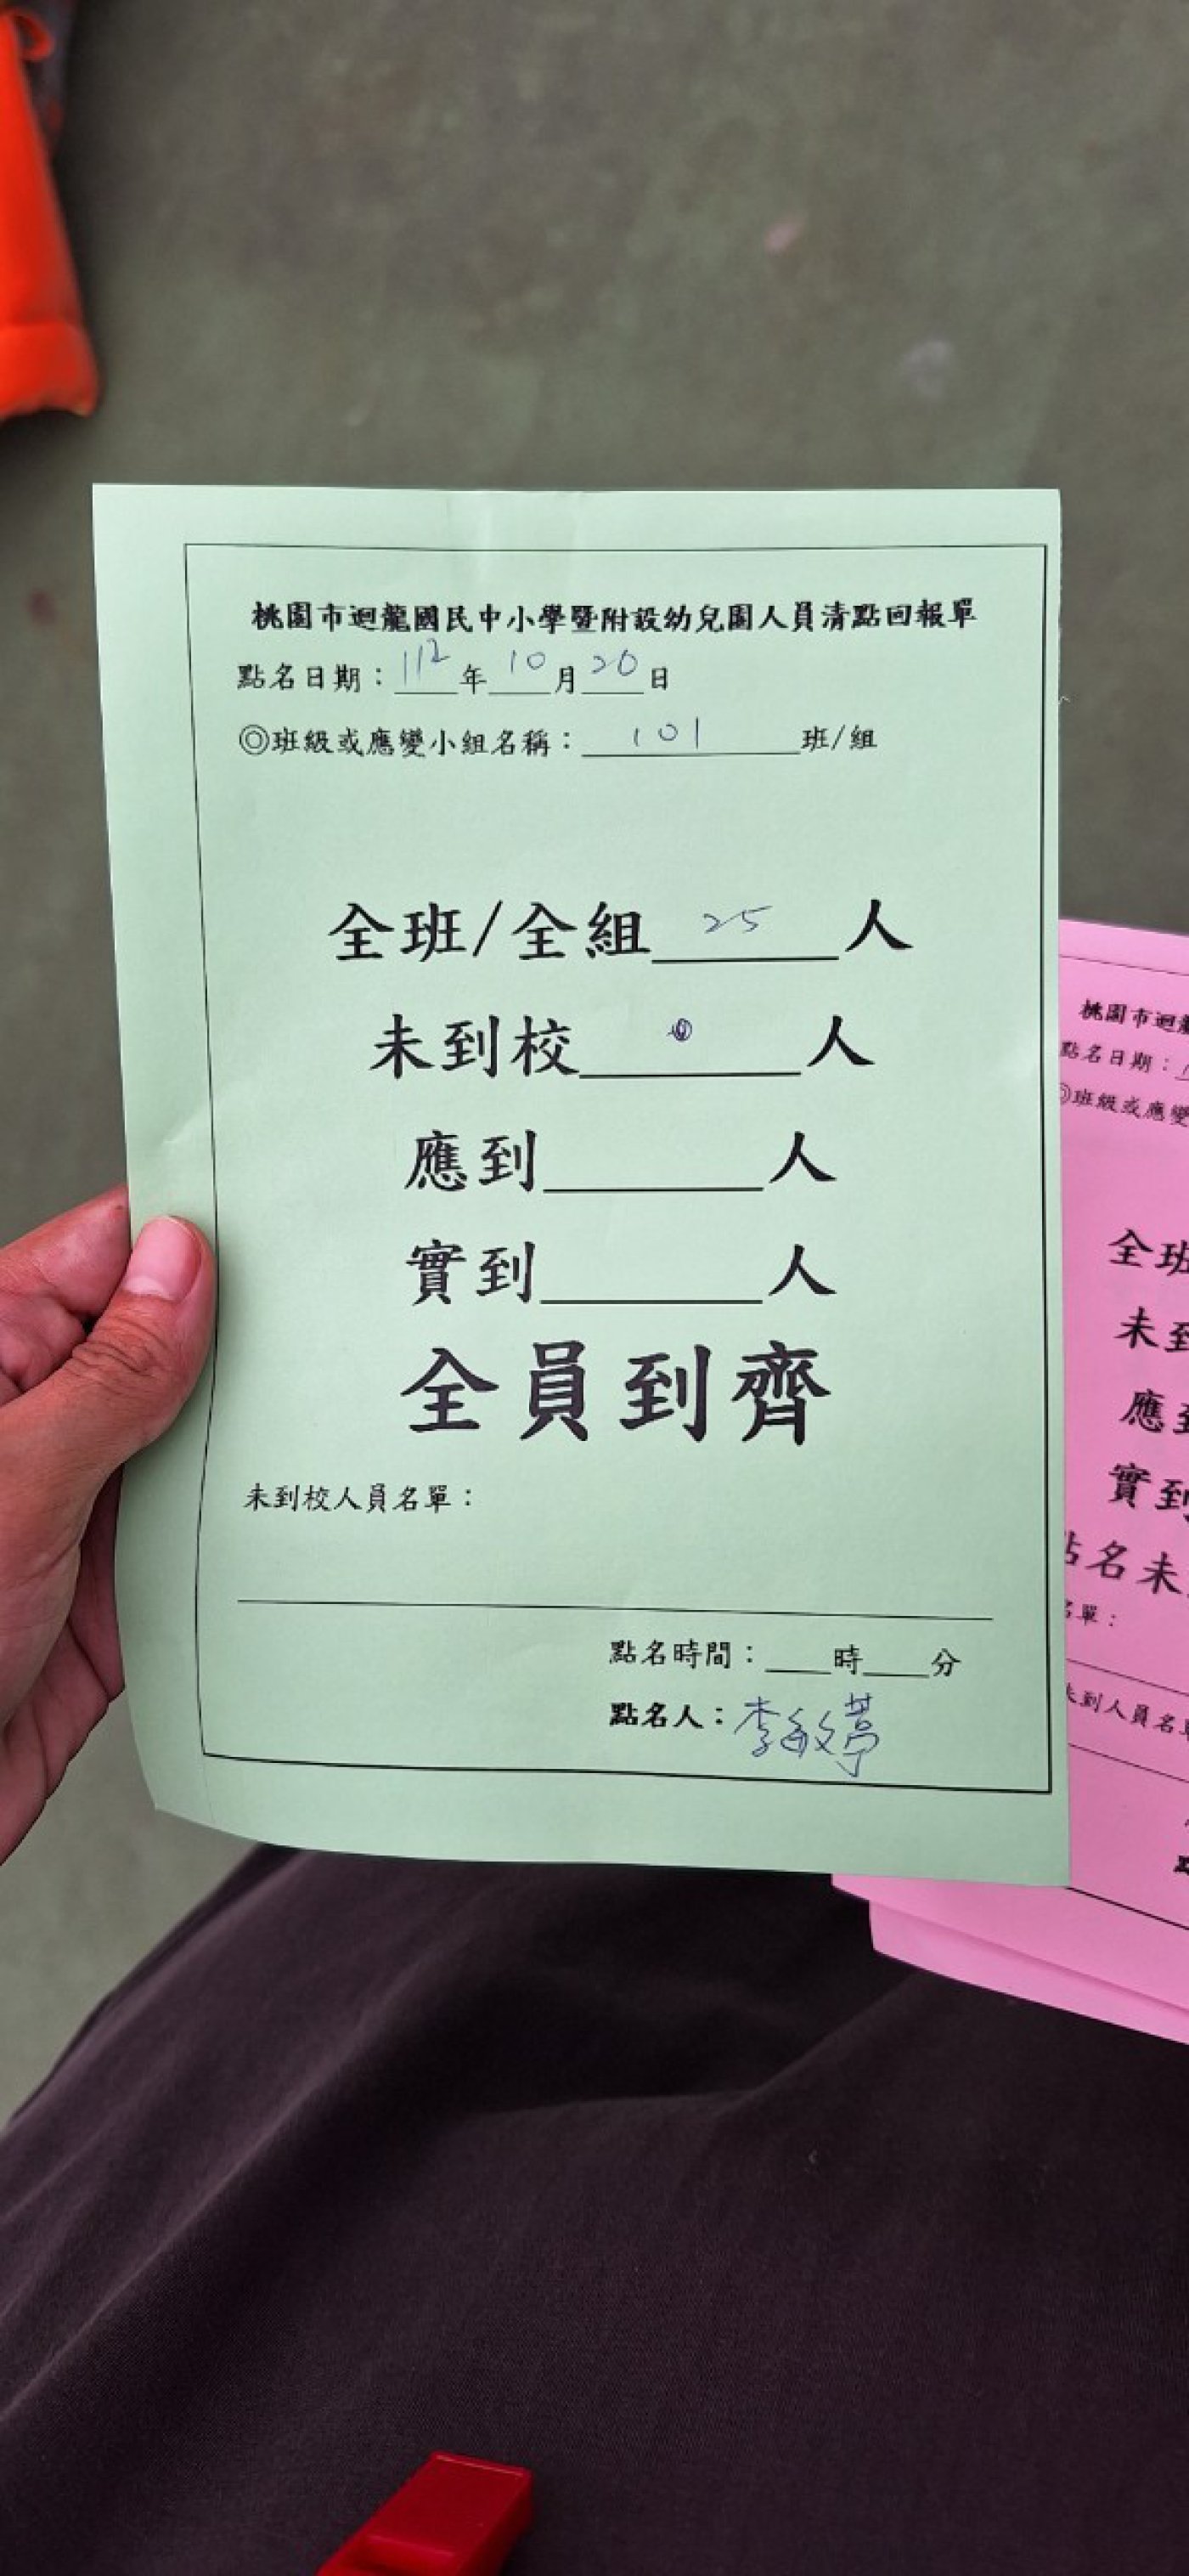 桃園市迴龍國民中小學暨附設幼兒園人員清點回報單
點名日期：112年10月20日
◎班級或應變小組名稱：101班/組
全班/全組25人
未到校0人
應到____人
實到____人
全員到齊
未到校人員名單：
點名時間：___時___分
點名人：李敏葶
桃園市迴龍
點名日期：
◎班級或應變
全班
未到
應到
實到
點名未
名單：
未到人員名單